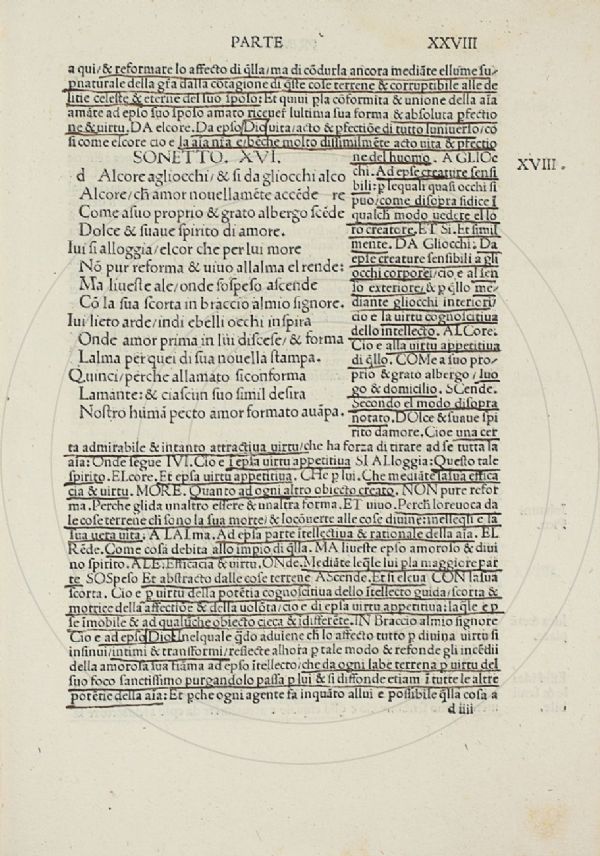 PARTE XXVIII
a qui/& reformare lo affecto di q̃lla/ma di cõdurla ancora mediãte ellume su/
pnaturale della gr̃a dalla cõtagione di q̃ste cose terrene & corruptibile alle de
litie celeste & eterne del suo sposo: Et quiui p la cõformita & unione della aĩa
amãte ad epso suo sposo amato riceuer lultima sua forma & absoluta pfectio
ne & uirtu. DA elcore. Da epso Dio/uita/acto & pfectiõe di tutto luniuerso/co
si come elcore cio e la aĩa nr̃a e/bẽche molto dissimilmẽte acto uita & pfectio
SONETTO. XVI.
d Alcore agliocchi/& si da gliocchi alco
Alcore/ch̃ amor nouellamẽte accẽde re
Come asuo proprio & grato albergo scẽde
Dolce & suaue spirito di amore.
Iui si alloggia/elcor che per lui more
Nõ pur reforma & uiuo allalma el rende:
Ma liueste ale/onde sospeso ascende
Cõ la sua scorta in braccio almio signore.
Iui lieto arde/indi ebelli occhi inspira
Onde amor prima in lui discese/& forma
Lalma per quei di sua nouella stampa.
Quinci/perche allamato siconforma
Lamante: & ciascun suo simil desira
Nostro humã pecto amor formato auãpa.
ne del huomo. A GLIOc
chi. Ad epse creature sensi
bili: p lequali quasi occhi si
puo/come disopra sidice ĩ
qualch̃ modo uedere el lo
ro creatore. ET SI. Et simil
mente. DA Gliocchi: Da
epse creature sensibili a gli
occhi corporei/cio e al sen
so exteriore/& p q̃llo me/
diante gliocchi interiori/
cio e la uirtu cognoscitiua
dello intellecto. ALCore:
Cio e alla uirtu appetitiua
di q̃llo. COMe a suo pro/
prio & grato albergo/luo
go & domicilio. SCende.
Secondo el modo disopra
notato. DOlce & suaue spi
rito damore. Cioe una cer
XVIII.
ta admirabile & intanto attractiua uirtu/che ha forza di tirare ad se tutta la
aĩa: Onde segue IVI. Cio e ĩ epsa uirtu appetitiua SI ALloggia: Questo tale
spirito. ELcore. Et epsa uirtu appetitiua. CHe p lui. Che mediãte la sua effica
cia & uirtu. MORE. Quanto ad ogni altro obiecto creato. NON pure refor
ma. Perche glida unaltro essere & unaltra forma. ET uiuo. Perch̃ loreuoca da
le cose terrene ch̃ sono la sua morte/& locõuerte alle cose diuine: nellesq̃li e la
sua uera uita: A LALma. Ad epsa parte ĩtellectiua & rationale della aĩa. EL
Rẽde. Come cosa debita allo impio di q̃lla. MA liueste epso amoroso & diui
no spirito. ALE: Efficacia & uirtu. ONde. Mediãte leq̃le lui p la maggiore par
te SOSpeso Et abstracto dalle cose terrene AScende. Et si eleua CON la sua
scorta. Cio e p uirtu della potẽtia cognoscitiua dello ĩtellecto guida/scorta &
motrice della affectiõe & della uolõta/cio e di epsa uirtu appetitiua: la q̃le e p
se ĩmobile & ad qualũche obiecto cieca & ĩdifferẽte. IN Braccio almio signore
Cio e ad epso Dio: nelquale q̃do aduiene ch̃ lo affecto tutto p diuina uirtu si
insinui/intimi & transformi/reflecte alhora p tale modo & refonde gli incẽdii
della amorosa sua fiãma ad epso ĩtellecto/che da ogni labe terrena p uirtu del
suo foco sanctissimo purgandolo passa p lui & si diffonde etiam ĩ tutte le altre
potẽtie della aĩa: Et pche ogni agente fa inquãto allui e possibile q̃lla cosa a
d iiii